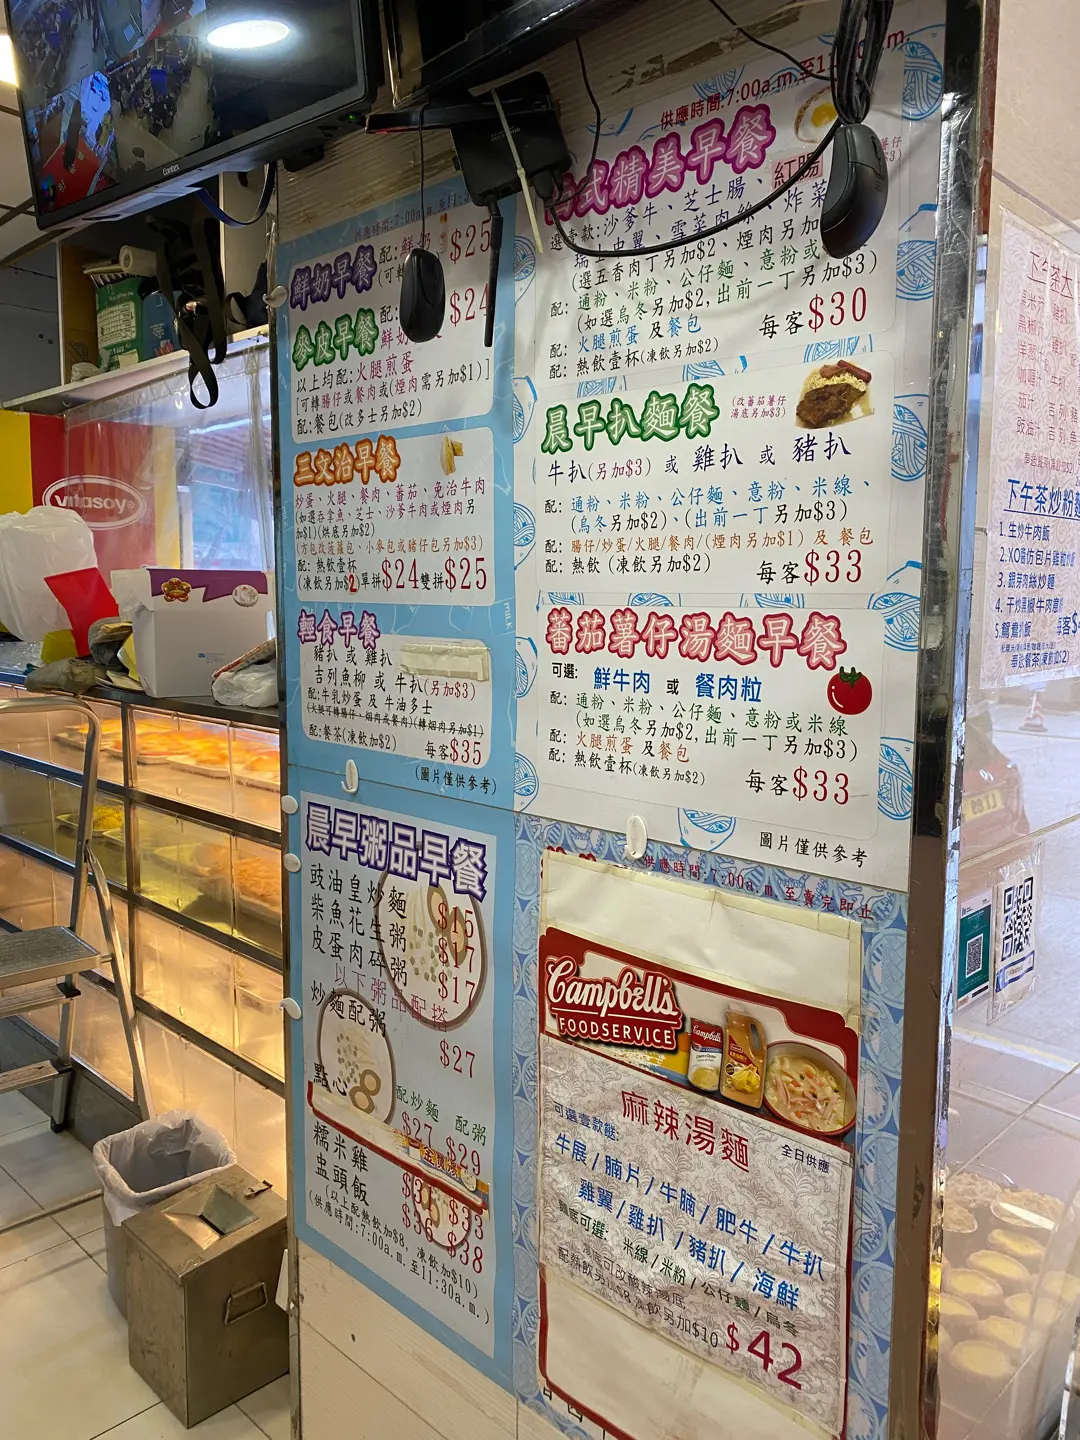 Contex
供應時間:7:00a.m.至11:
鮮奶早餐
配:鮮奶
$25
(可轉
麥皮早餐
配:
鮮奶
$24
以上均配:火腿煎蛋
[可轉腸仔或餐肉或(煙肉需另加$1)]
配:餐包(改多士另加$2)
三文治早餐
炒蛋、火腿、餐肉、蕃茄、免治牛肉
(如選吞拿魚、芝士、沙爹牛肉或煙肉另
加$1)(烘底另加$2)
(方包改菠蘿包、小麥包或豬仔包另加$3)
配:熱飲壹杯
(凍飲另加$2)單拼$24雙拼$25
輕食早餐
豬扒 或 雞扒
吉列魚柳 或 牛扒(另加$3)
配:牛乳炒蛋 及 牛油多士
(火腿可轉腸仔、烟肉或餐肉)(轉烟肉另加$1)
配:餐茶(凍飲加$2)
每客$35
(圖片僅供參考)
晨早粥品早餐
豉油皇炒麵 $15
柴魚花生粥 $17
皮蛋肉碎粥 $17
以下粥品配搭
炒麵配粥
$27
點心
配炒麵 配粥
$27 $29
糯米雞 $31 $33
盅頭飯 $36 $38
(以上配熱飲加$8，凍飲加$10)
(供應時間:7:00a.m.至11:30a.m.)
供應時間:7:00a.m.至11:
式精美早餐
紅腸
選壹款:沙爹牛、芝士腸、炸菜
雪菜肉絲、
(選五香肉丁另加$2、煙肉另加
配:通粉、米粉、公仔麵、意粉或
(如選烏冬另加$2,出前一丁另加$3)
配:火腿煎蛋 及 餐包
配:熱飲壹杯(凍飲另加$2)
每客$30
晨早扒麵餐
(改蕃茄薯仔
湯底另加$3)
牛扒(另加$3) 或 雞扒 或 豬扒
配:通粉、米粉、公仔麵、意粉、米線、
(烏冬另加$2)、(出前一丁另加$3)
配:腸仔/炒蛋/火腿/餐肉/(煙肉另加$1) 及 餐包
配:熱飲 (凍飲另加$2)
每客$33
蕃茄薯仔湯麵早餐
可選: 鮮牛肉 或 餐肉粒
配:通粉、米粉、公仔麵、意粉或米線
(如選烏冬另加$2,出前一丁另加$3)
配:火腿煎蛋 及 餐包
配:熱飲壹杯(凍飲另加$2)
每客$33
圖片僅供參考
供應時間:7:00a.m.至賣完即止
Campbell's
FOODSERVICE
麻辣湯麵
全日供應
可選壹款餸:
牛展/腩片/牛腩/肥牛/牛扒
雞翼/雞扒/豬扒/海鮮
麵底可選:米線/米粉/公仔麵/烏冬
湯底可改酸辣湯底
配熱飲另加$8凍飲另加$10
$42
vitasoy
下午茶大
下午茶炒粉麵
1.生炒牛肉飯
2.XO醬
3.銀芽肉絲炒麵
4.干炒黑椒牛肉意
5.鴛鴦炒飯
每客$